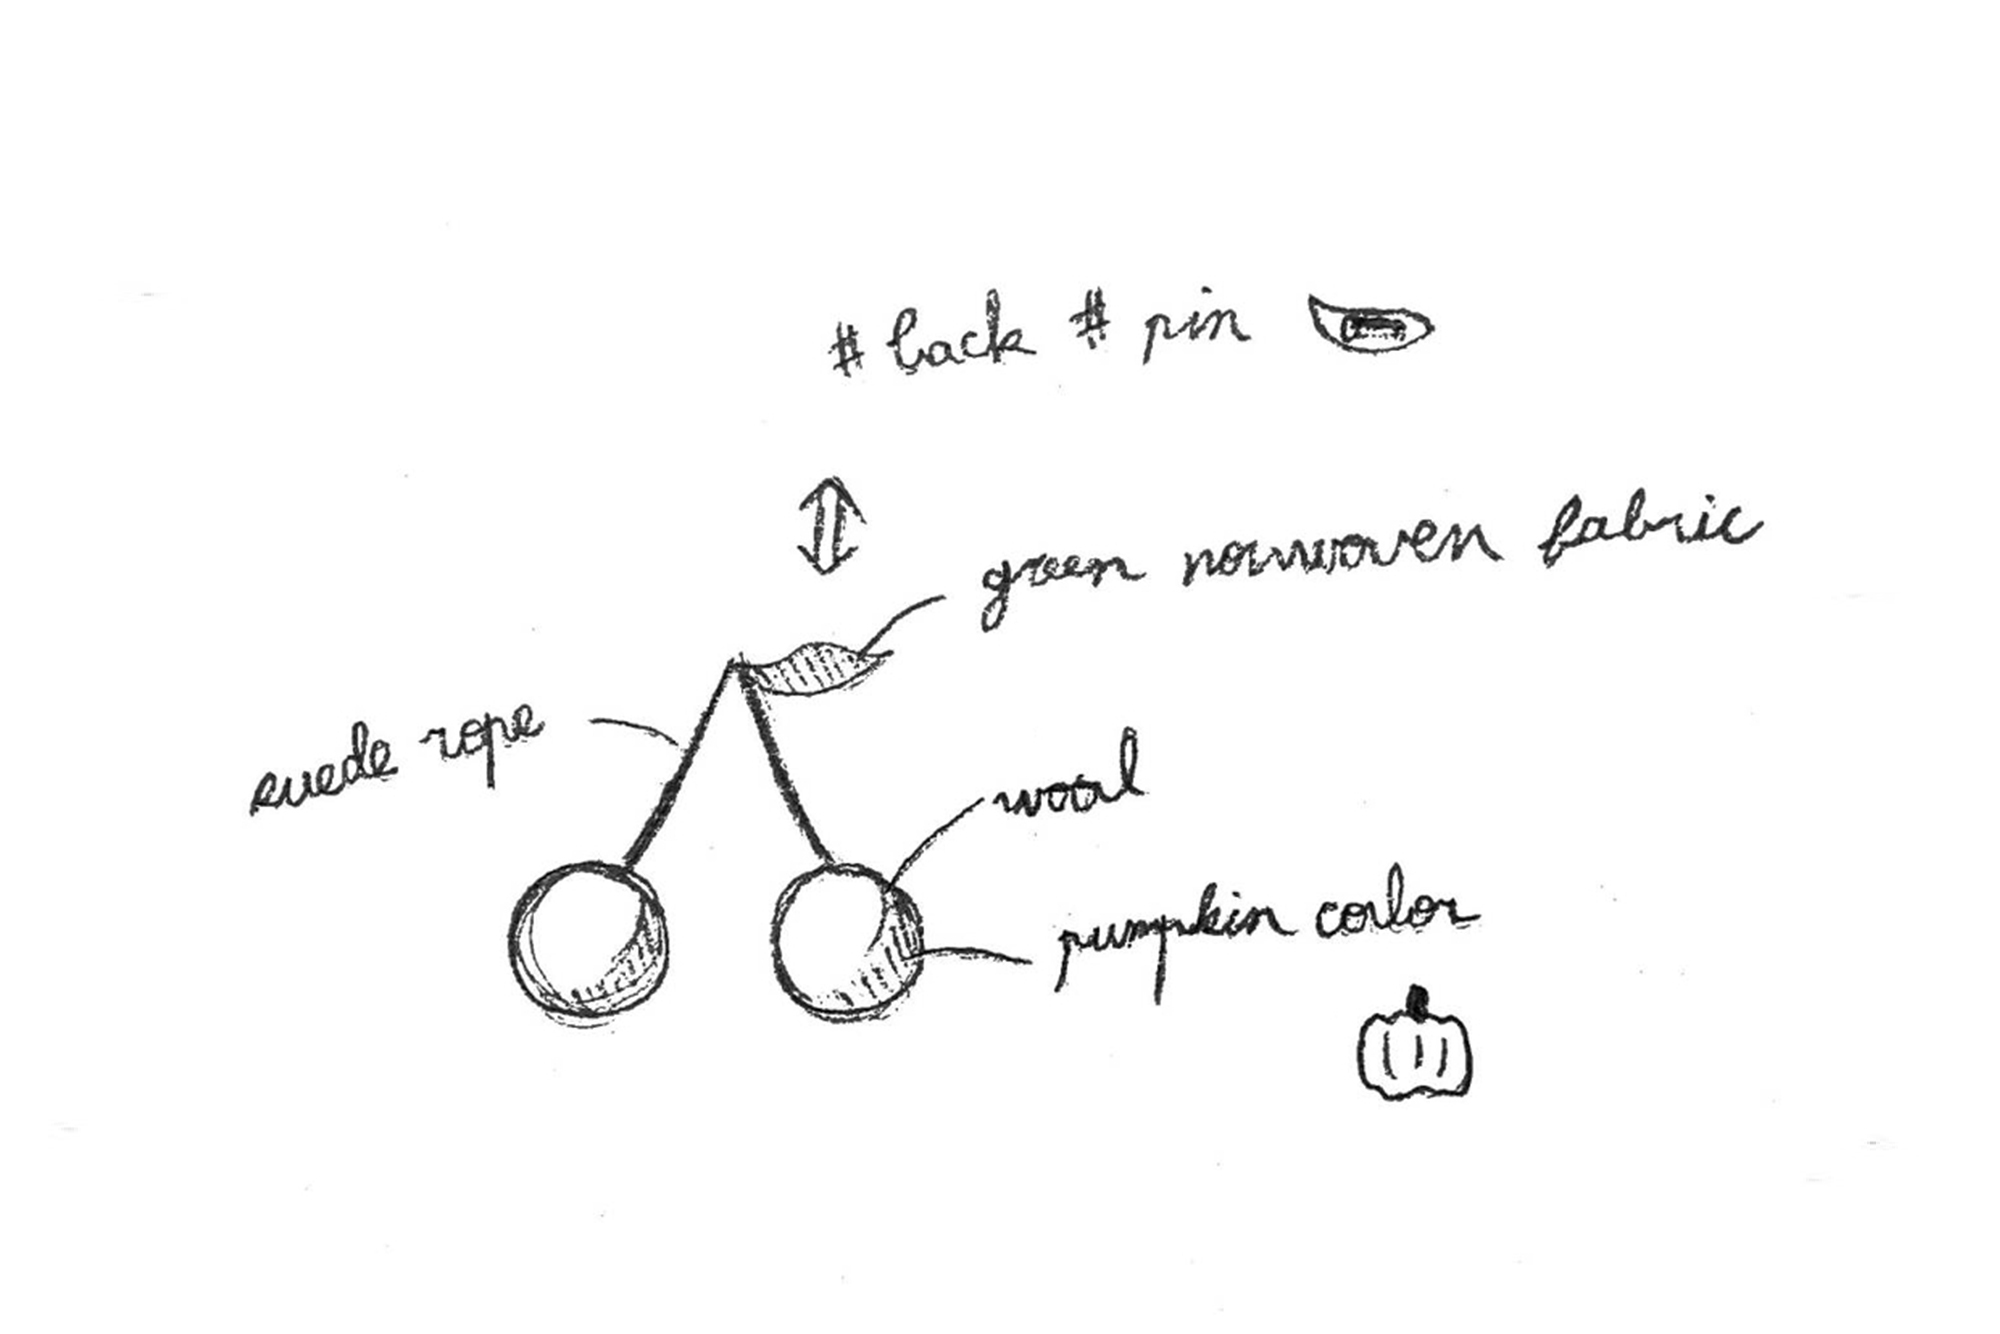 # back # pin
green nonwoven fabric
suede rope
wool
pumpkin corlor